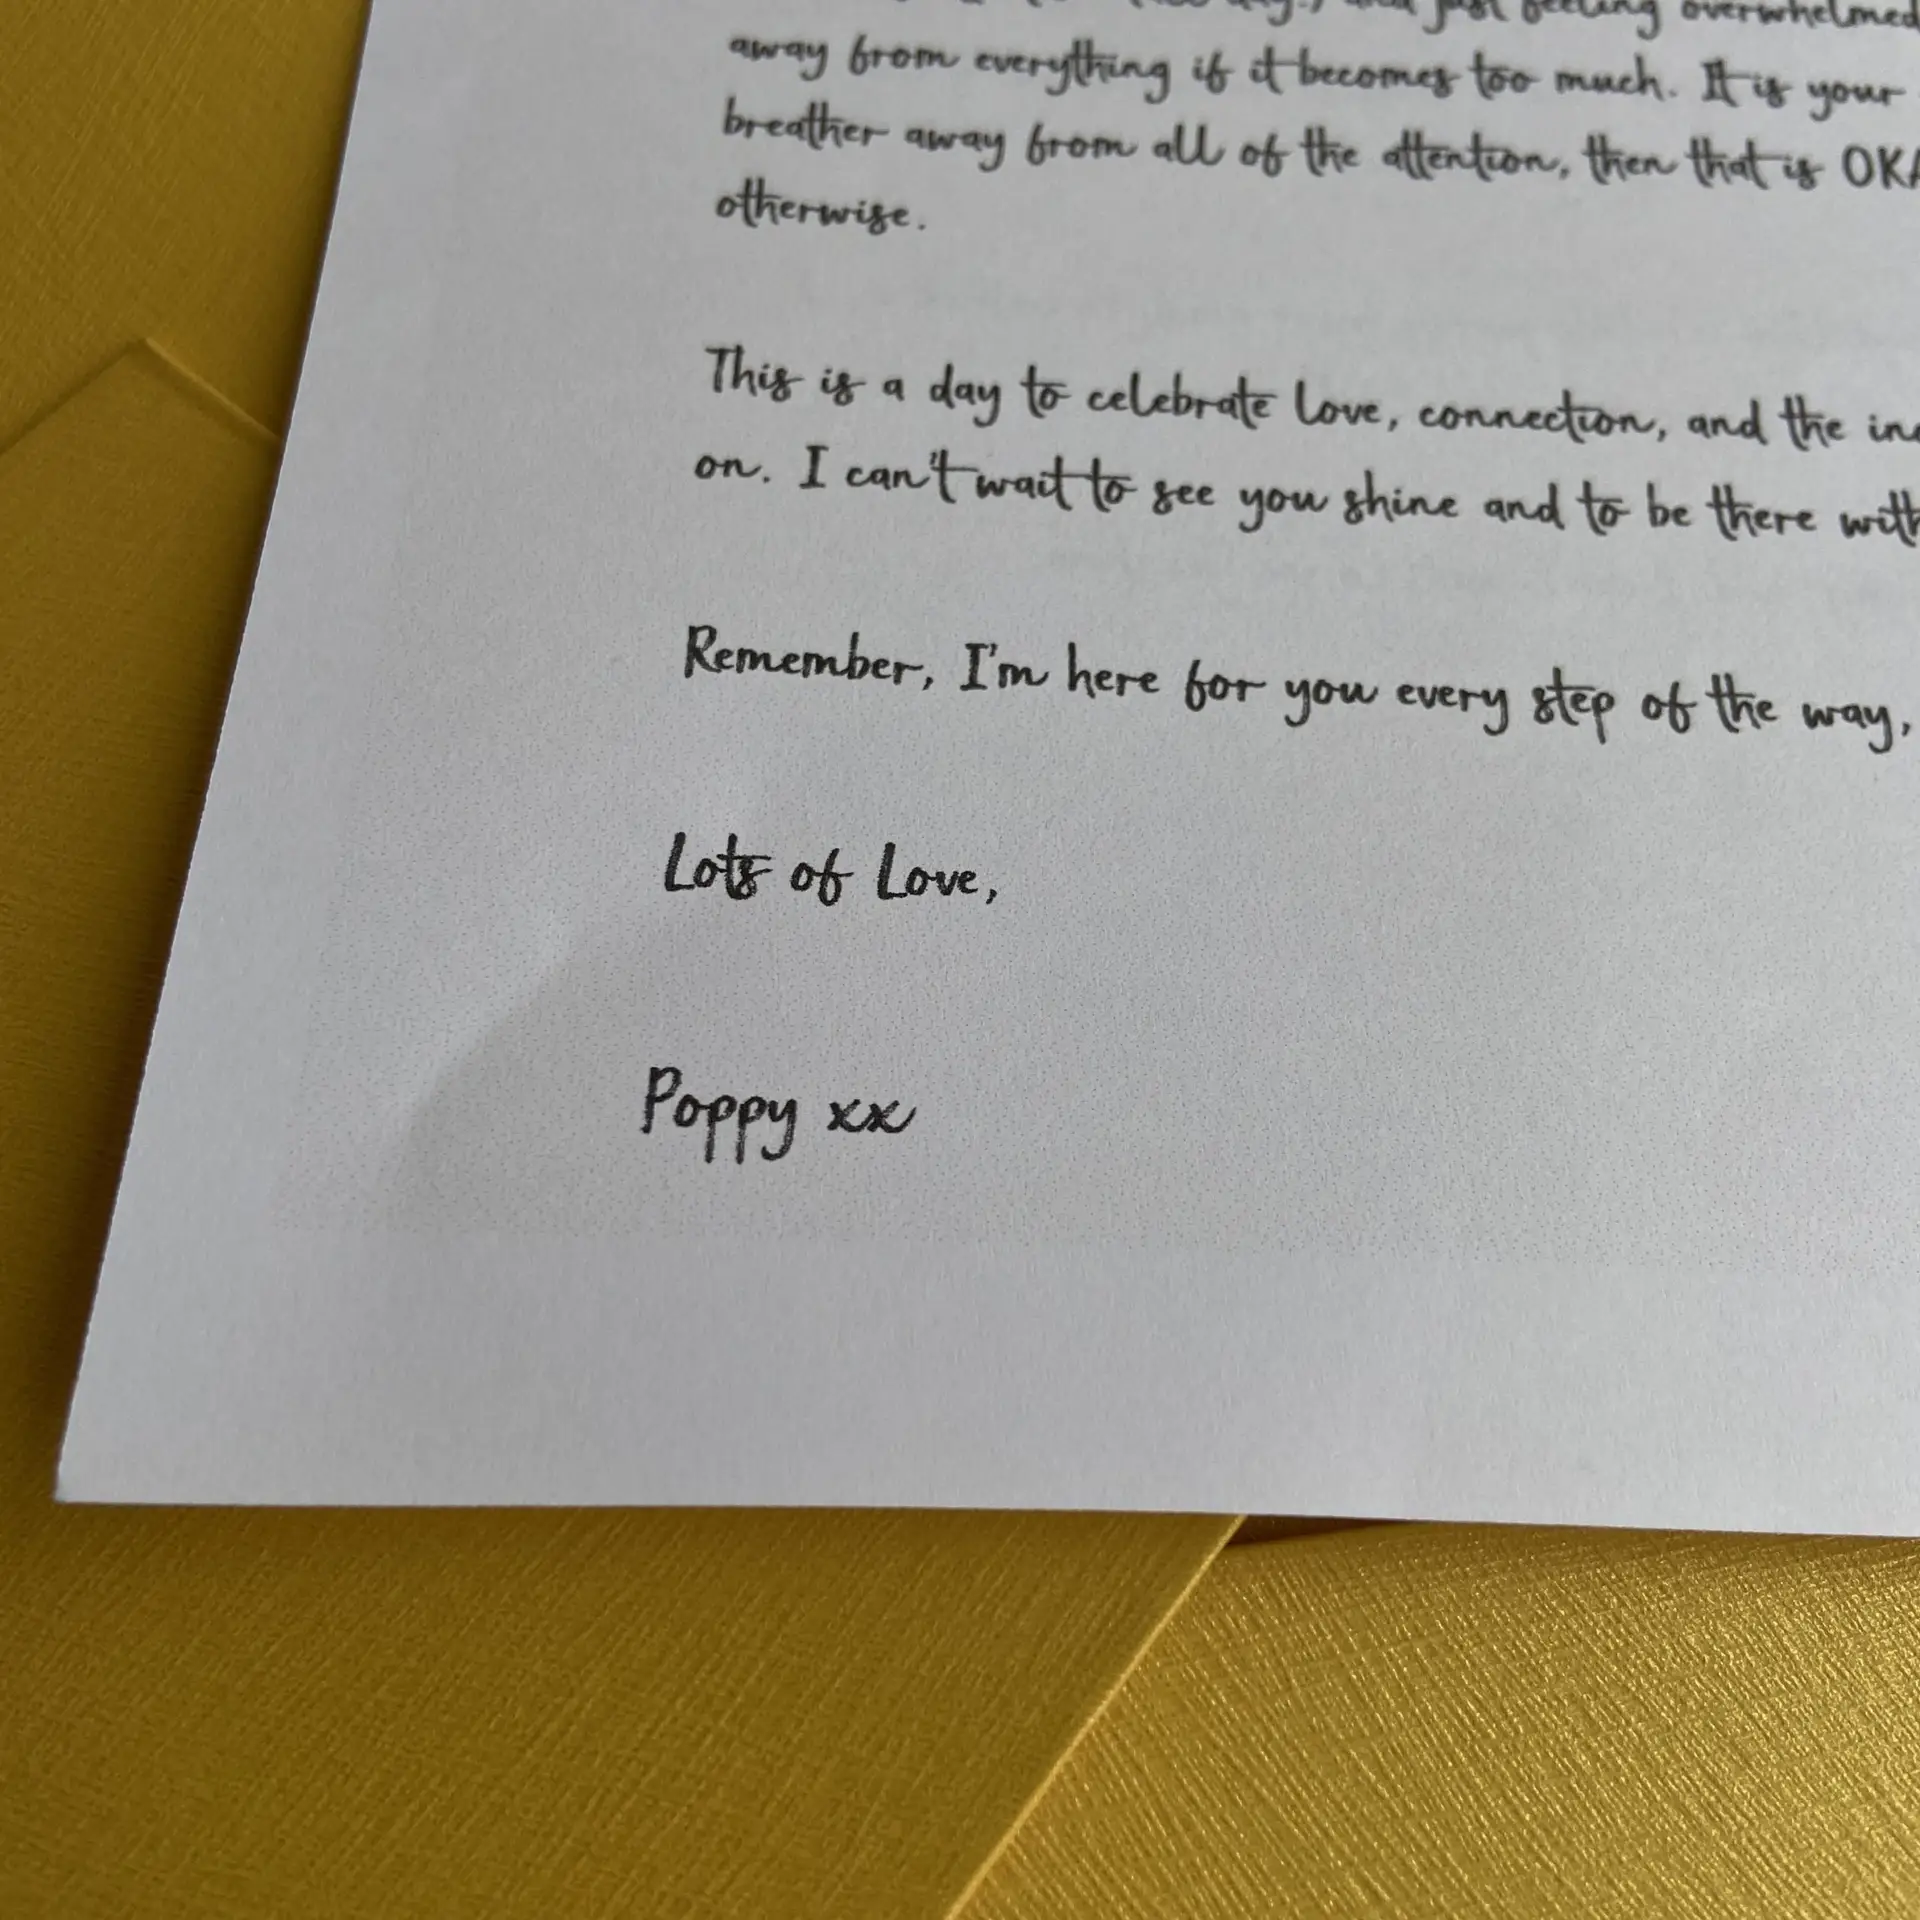 just feeling overwhelmed
away from everything if it becomes too much. It is your
breather away from all of the attention, then that is
otherwise.
This is a day to celebrate love, connection, and the
on. I can't wait to see you shine and to be there with
Remember, I'm here for you every step of the way,
Lots of Love,
Poppy xx